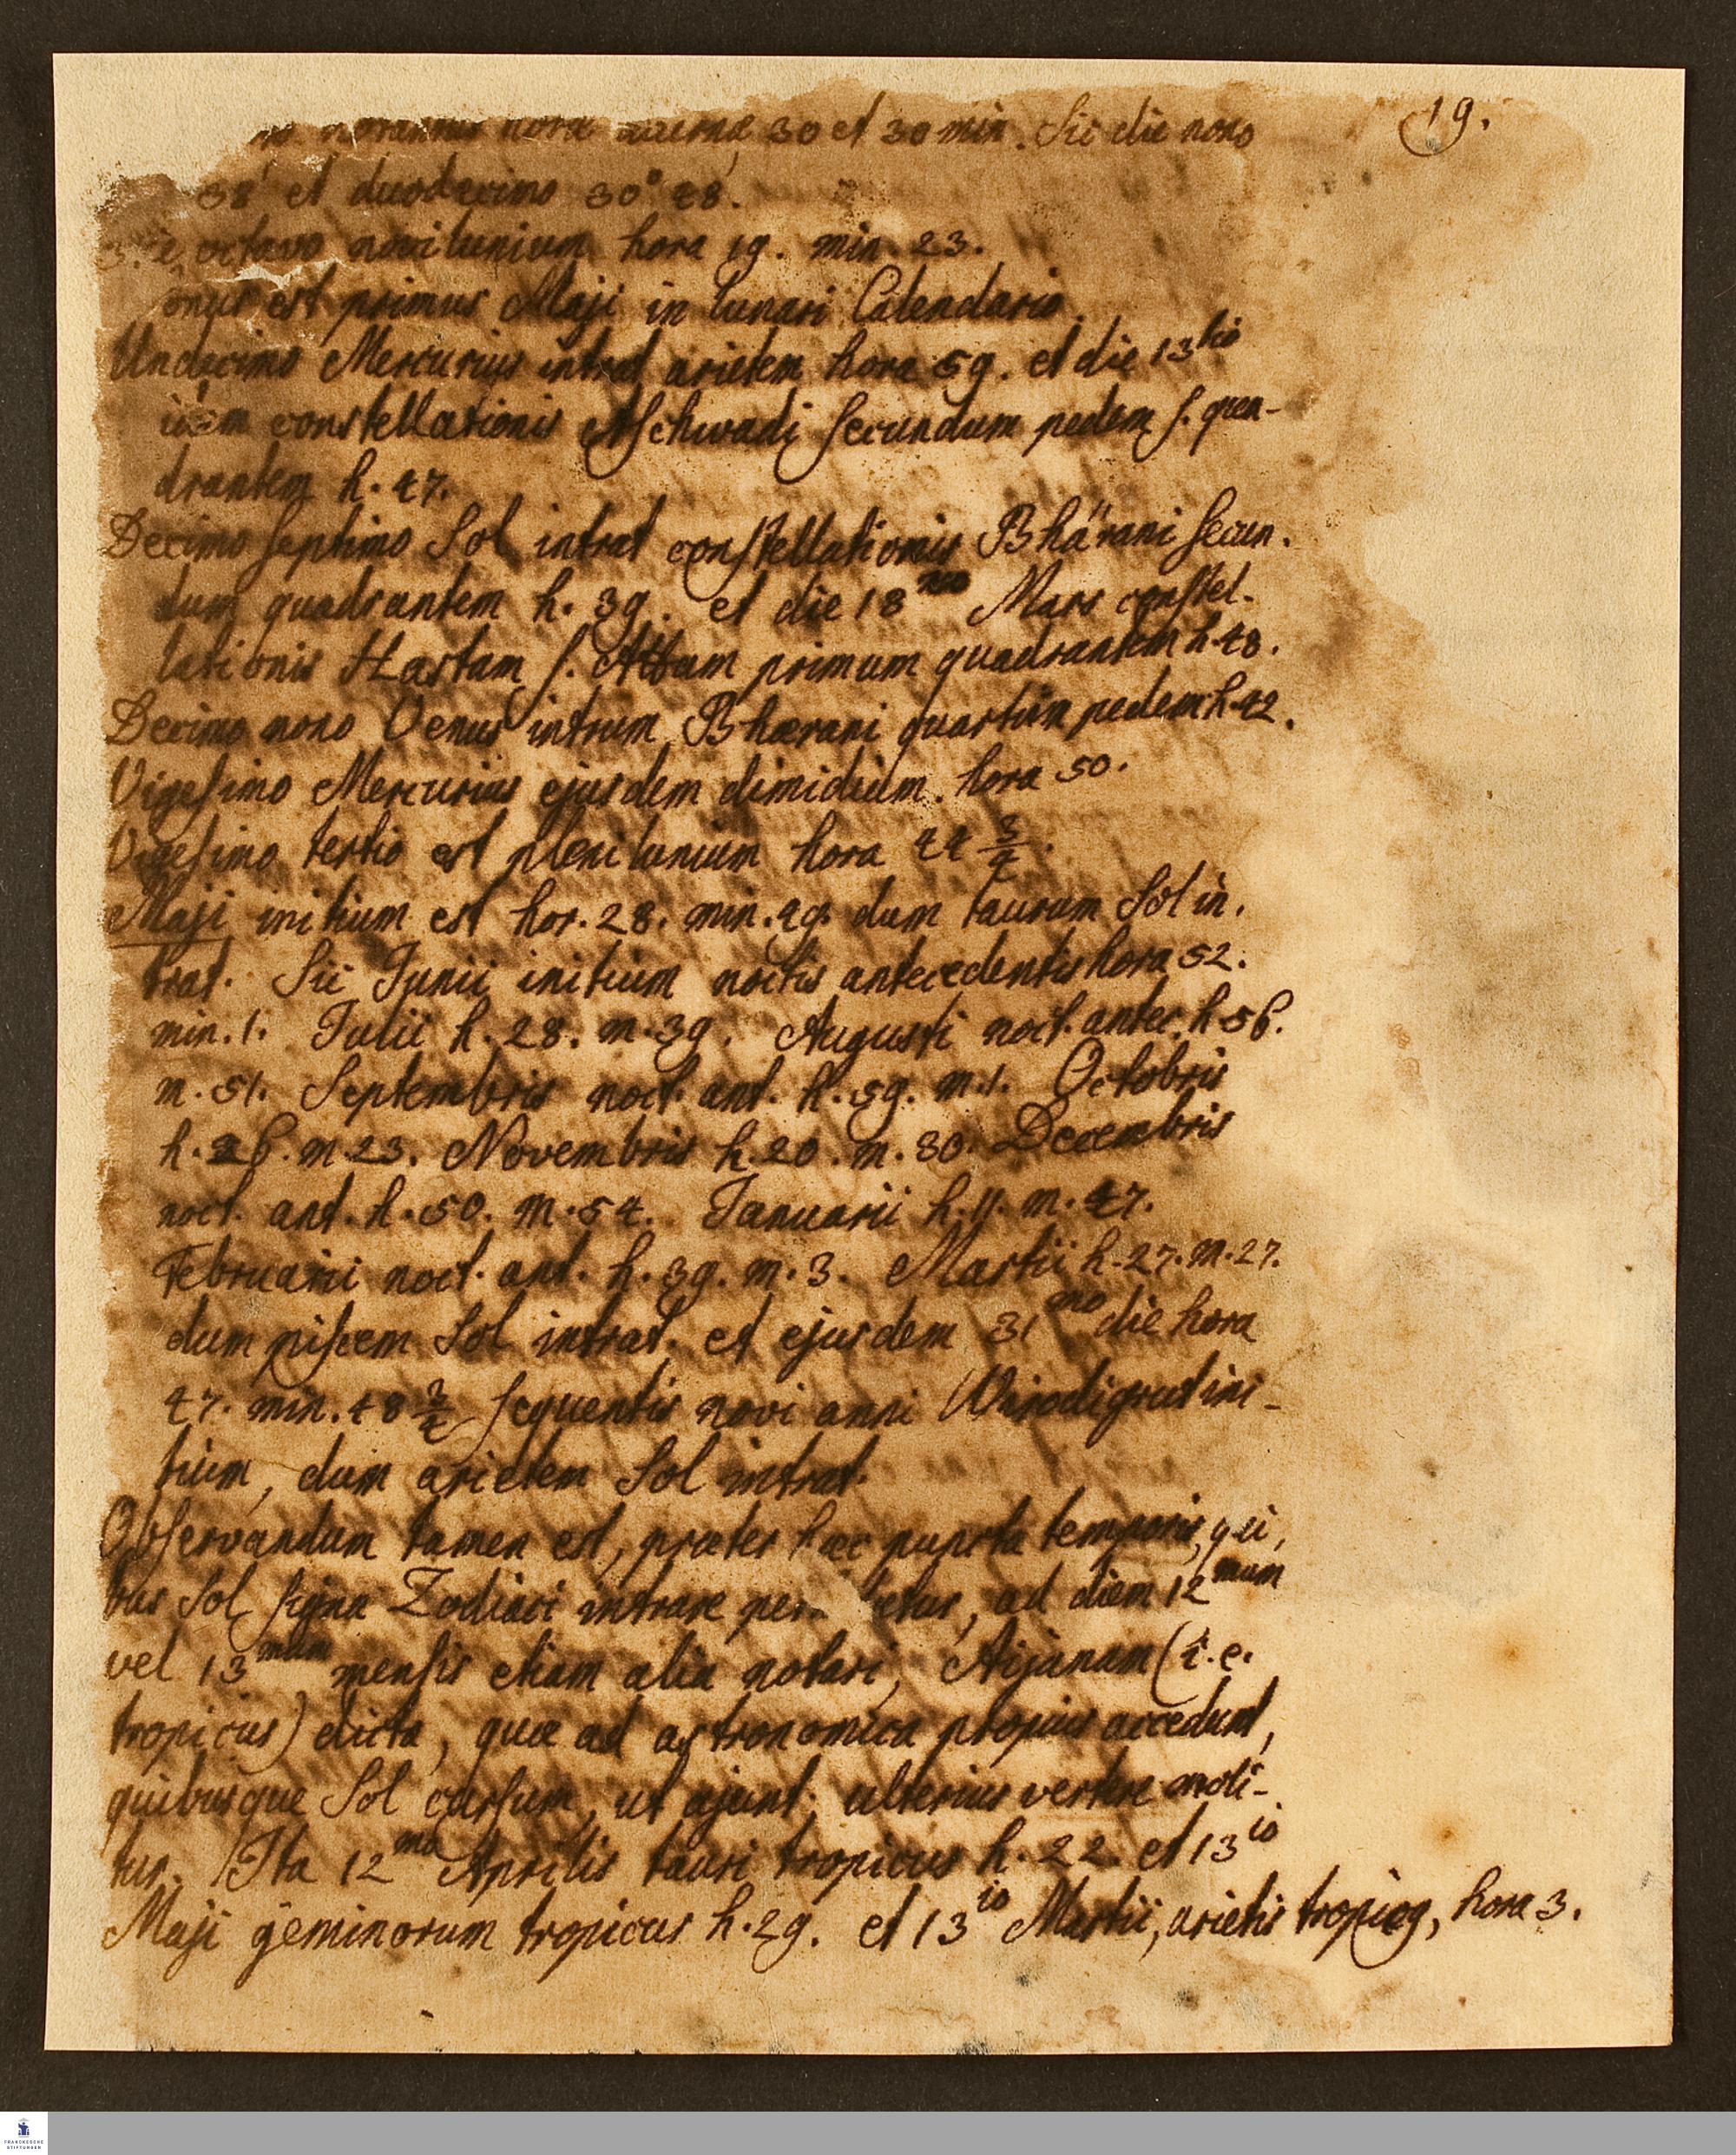 19.
hora diurna 30 et 30 min. Sic die nono
38' et duodecimo 30° 28'.
octavo novilunium hora 19. min. 23.
est primus Maji in lunari Calendario.
Undecimo Mercurius intrat arietem hora 59. et die 13tio
item constellationis Aschwadi secundum pedem s. qua-
drantem h. 47.
Decimo septimo Sol intrat constellationis Bhärani secun-
dum quadrantem h. 39. et die 18vo Mars constel-
lationis Hastam s. Attam primum quadrantem h. 48.
Decimo nono Venus intrum Bhærani quartum pedem h. 42.
Vigesimo Mercurius ejusdem dimidium hora 50.
Vigesimo tertio est plenilunium hora 44 3/4.
Maji initium est hor. 28. min. 49. dum taurum Sol in-
trat. Sic Junii initium noctis antecedentis hora 52.
min. 1. Julii h. 28. m. 39. Augusti noct. antec. h. 56.
m. 51. Septembris noct. ant. h. 59. m. 1. Octobris
h. 26. m. 23. Novembris h. 20. m. 30. Decembris
noct. ant. h. 50. m. 54. Januarii h. 11. m. 47.
Februarii noct. ant. h. 39. m. 3. Martii h. 27. m. 27.
dum piscem Sol intrat. et ejusdem 31mo die hora
47. min. 48 3/4 sequentis novi anni Wirodigrut ini-
tium, dum arietem Sol intrat.
Observandum tamen est, præter hæc puncta temporis, qui-
bus Sol signa Zodiaci intrare ad diem 12mum
vel 13mum mensis etiam alia notari, Aijanam (i.e.
tropicus) dicta, quæ ad astronomica propius accedunt,
quibusque Sol cursum, ut ajunt, ulterius vertere moli-
tur. Ita 12mo Aprilis tauri tropicus h. 22. et 13io
Maji geminorum tropicus h. 29. et 13io Martii, arietis tropicq, hora 3.
FRANCKESCHE
STIFTUNGEN